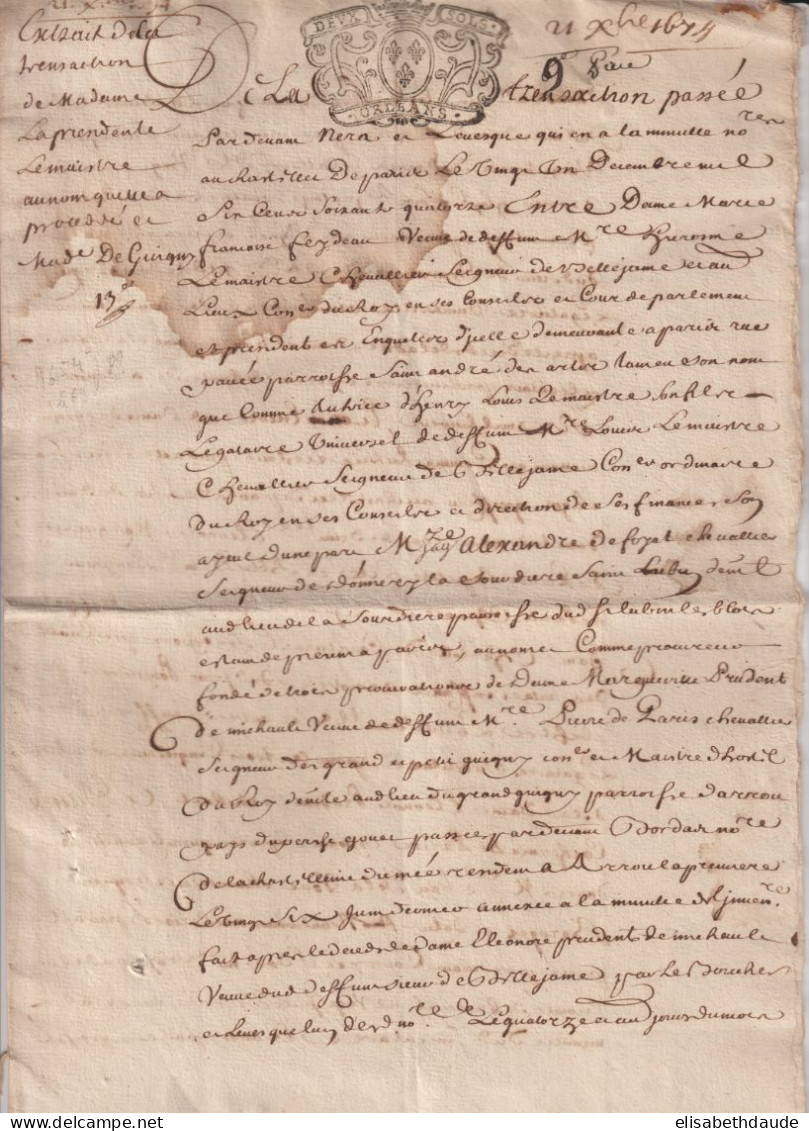 DEUX SOLS
ORLEANS
21 Xbre 1674
Extrait de la
transaction
de Madame
La presidente
Lemaistre
au nom quelle a
procedé et
Made De Guigny
13e
De La transaction passée
Pardevant Nera et Levesque qui en a la minutte nores
au chastellet De paris Le Vingt Un Decembre mil
Six Cens Soixante quatorze Entre Dame Marie
francoise feydeau Veuve de deffunt Mre Hierosme
Lemaistre Chevallier Seigneur de Bellejame et au
Lieux Coner du Roy en ses Conseils et Cour de parlement
et president es Enquestes d'icelle demeurante a paris rue
pavée parroisse Saint andré des artz tant en son nom
que Comme tutrice d'henry Louis Lemaistre son fils
Legataire Universel de deffunt Mre Louis Lemaistre
Chevallier Seigneur de Bellejame Coner ordinaire
Du Roy en ses Conseils et direction de ses finances Son
ayeul dune part Mre Alexandre de foyal chevallier
Seigneur de donnery la Sourdiere Saint Lubin demt
aud lieu de la Sourdiere parroisse dud St lubin les blois
estant de present a paris, au nom et Comme procureur
fondé de trois procurations de Dame Marguerite Prudent
de michault Veuve de deffunt Mre Pierre de Paris chevallier
Seigneur des grand et petit guigny coner et Maistre d'hostel
du Roy demte aud lieu du grand guigny parroisse d'arrou
pays du perche gouet passées pardevant Bordas nore
de la chastellenie du mée rendent a Arrou la premiere
Le Vingt Six Juin dernier annexée a la minutte de l'Jnvenre
fait apres le deceds de dame Eleonore prudent de michault
Veuve dud deffunt sieur de Bellejame par Le Boucher
et Levesque luy desd nore Le quatorze et au jours du mois
elisabethdaude